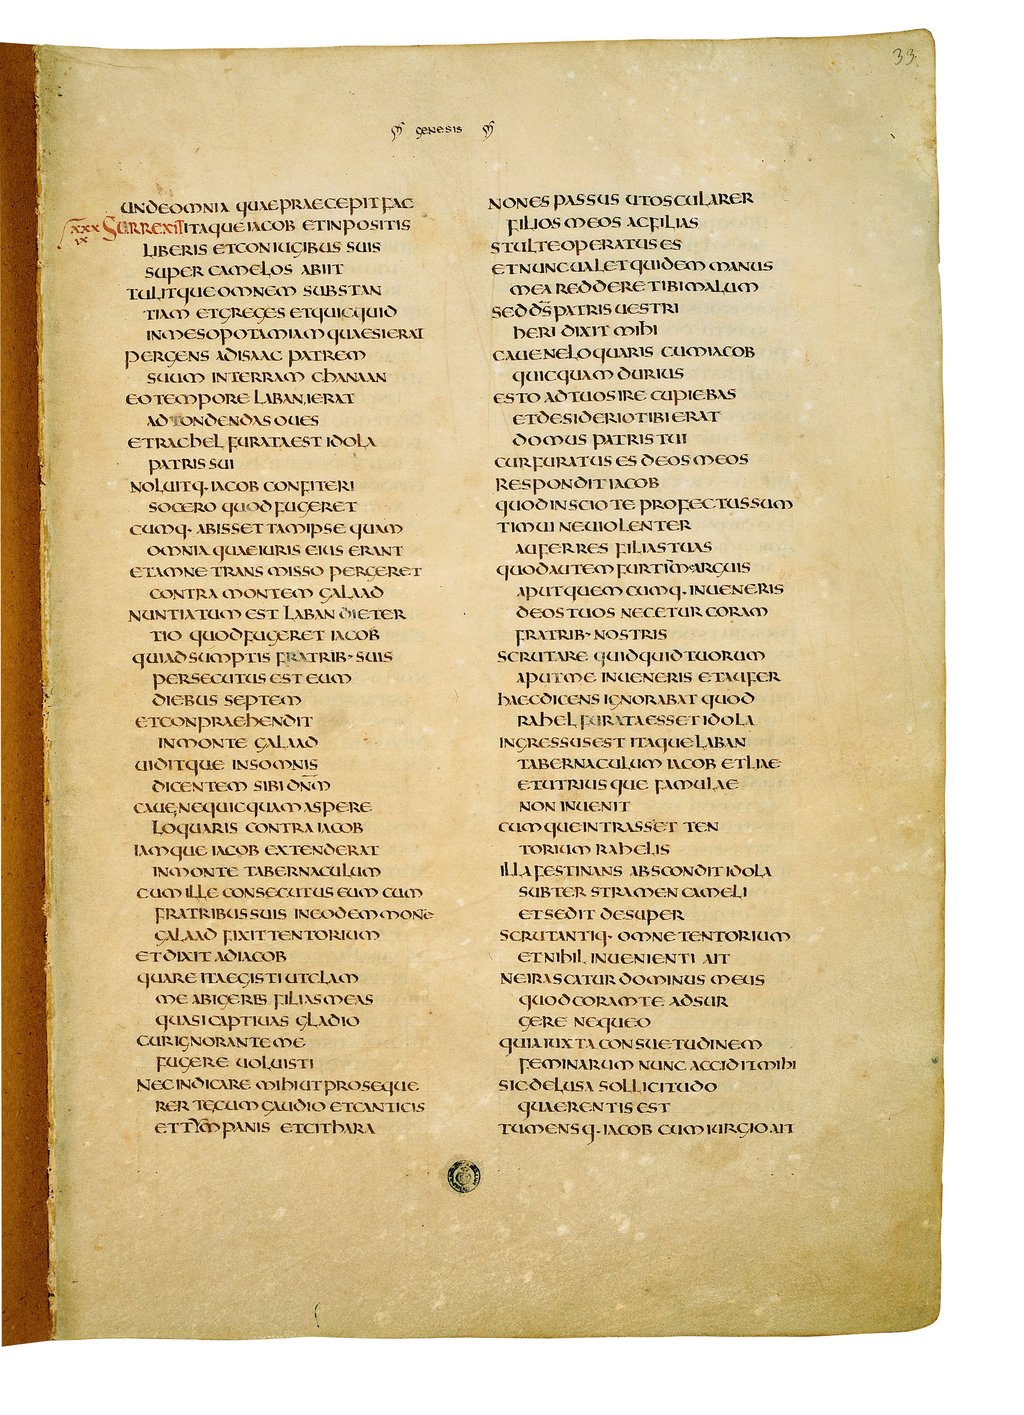 33
GENESIS
UNDE OMNIA QUAE PRAECEPIT FAC
XXXIX SURREXIT ITAQUE IACOB ET INPOSITIS
LIBERIS ET CONIUGIBUS SUIS
SUPER CAMELOS ABIIT
TULITQUE OMNEM SUBSTAN
TIAM ET GREGES ET QUICQUID
IN MESOPOTAMIAM QUAESIERAT
PERGENS AD ISAAC PATREM
SUUM IN TERRAM CHANAAN
EO TEMPORE LABAN IERAT
AD TONDENDAS OUES
ET RACHEL FURATA EST IDOLA
PATRIS SUI
NOLUITQ· IACOB CONFITERI
SOCERO QUOD FUGERET
CUMQ· ABISSET TAM IPSE QUAM
OMNIA QUAE IURIS EIUS ERANT
ET AMNE TRANSMISSO PERGERET
CONTRA MONTEM GALAAD
NUNTIATUM EST LABAN DIE TER
TIO QUOD FUGERET IACOB
QUI ADSUMPTIS FRATRIB· SUIS
PERSECUTUS EST EUM
DIEBUS SEPTEM
ET CONPRAEHENDIT
IN MONTE GALAAD
UIDITQUE IN SOMNIS
DICENTEM SIBI DNM
CAUE NE QUICQUAM ASPERE
LOQUARIS CONTRA IACOB
IAMQUE IACOB EXTENDERAT
IN MONTE TABERNACULUM
CUM ILLE CONSECUTUS EUM CUM
FRATRIBUS SUIS IN EODEM MONTE
GALAAD FIXIT TENTORIUM
ET DIXIT AD IACOB
QUARE ITA EGISTI UT CLAM
ME ABIGERES FILIAS MEAS
QUASI CAPTIUAS GLADIO
CUR IGNORANTE ME
FUGERE UOLUISTI
NEC INDICARE MIHI UT PROSEQUE
RER TECUM GAUDIO ET CANTICIS
ET TYMPANIS ET CITHARA
NON ES PASSUS UT OSCULARER
FILIOS MEOS AC FILIAS
STULTE OPERATUS ES
ET NUNC UALET QUIDEM MANUS
MEA REDDERE TIBI MALUM
SED DS PATRIS UESTRI
HERI DIXIT MIHI
CAUE NE LOQUARIS CUM IACOB
QUICQUAM DURIUS
ESTO AD TUOS IRE CUPIEBAS
ET DESIDERIO TIBI ERAT
DOMUS PATRIS TUI
CUR FURATUS ES DEOS MEOS
RESPONDIT IACOB
QUOD INSCIO TE PROFECTUS SUM
TIMUI NE UIOLENTER
AUFERRES FILIAS TUAS
QUOD AUTEM FURTI ME ARGUIS
APUT QUEMCUMQ· INUENERIS
DEOS TUOS NECETUR CORAM
FRATRIB· NOSTRIS
SCRUTARE QUIDQUID TUORUM
APUT ME INUENERIS ET AUFER
HAEC DICENS IGNORABAT QUOD
RAHEL FURATA ESSET IDOLA
INGRESSUS EST ITAQUE LABAN
TABERNACULUM IACOB ET LIAE
ET UTRIUSQUE FAMULAE
NON INUENIT
CUMQUE INTRASSET TEN
TORIUM RAHELIS
ILLA FESTINANS ABSCONDIT IDOLA
SUBTER STRAMEN CAMELI
ET SEDIT DESUPER
SCRUTANTIQ· OMNE TENTORIUM
ET NIHIL INUENIENTI AIT
NE IRASCATUR DOMINUS MEUS
QUOD CORAM TE ADSUR
GERE NEQUEO
QUIA IUXTA CONSUETUDINEM
FEMINARUM NUNC ACCIDIT MIHI
SIC DELUSA SOLLICITUDO
QUAERENTIS EST
TUMENSQ· IACOB CUM IURGIO AIT